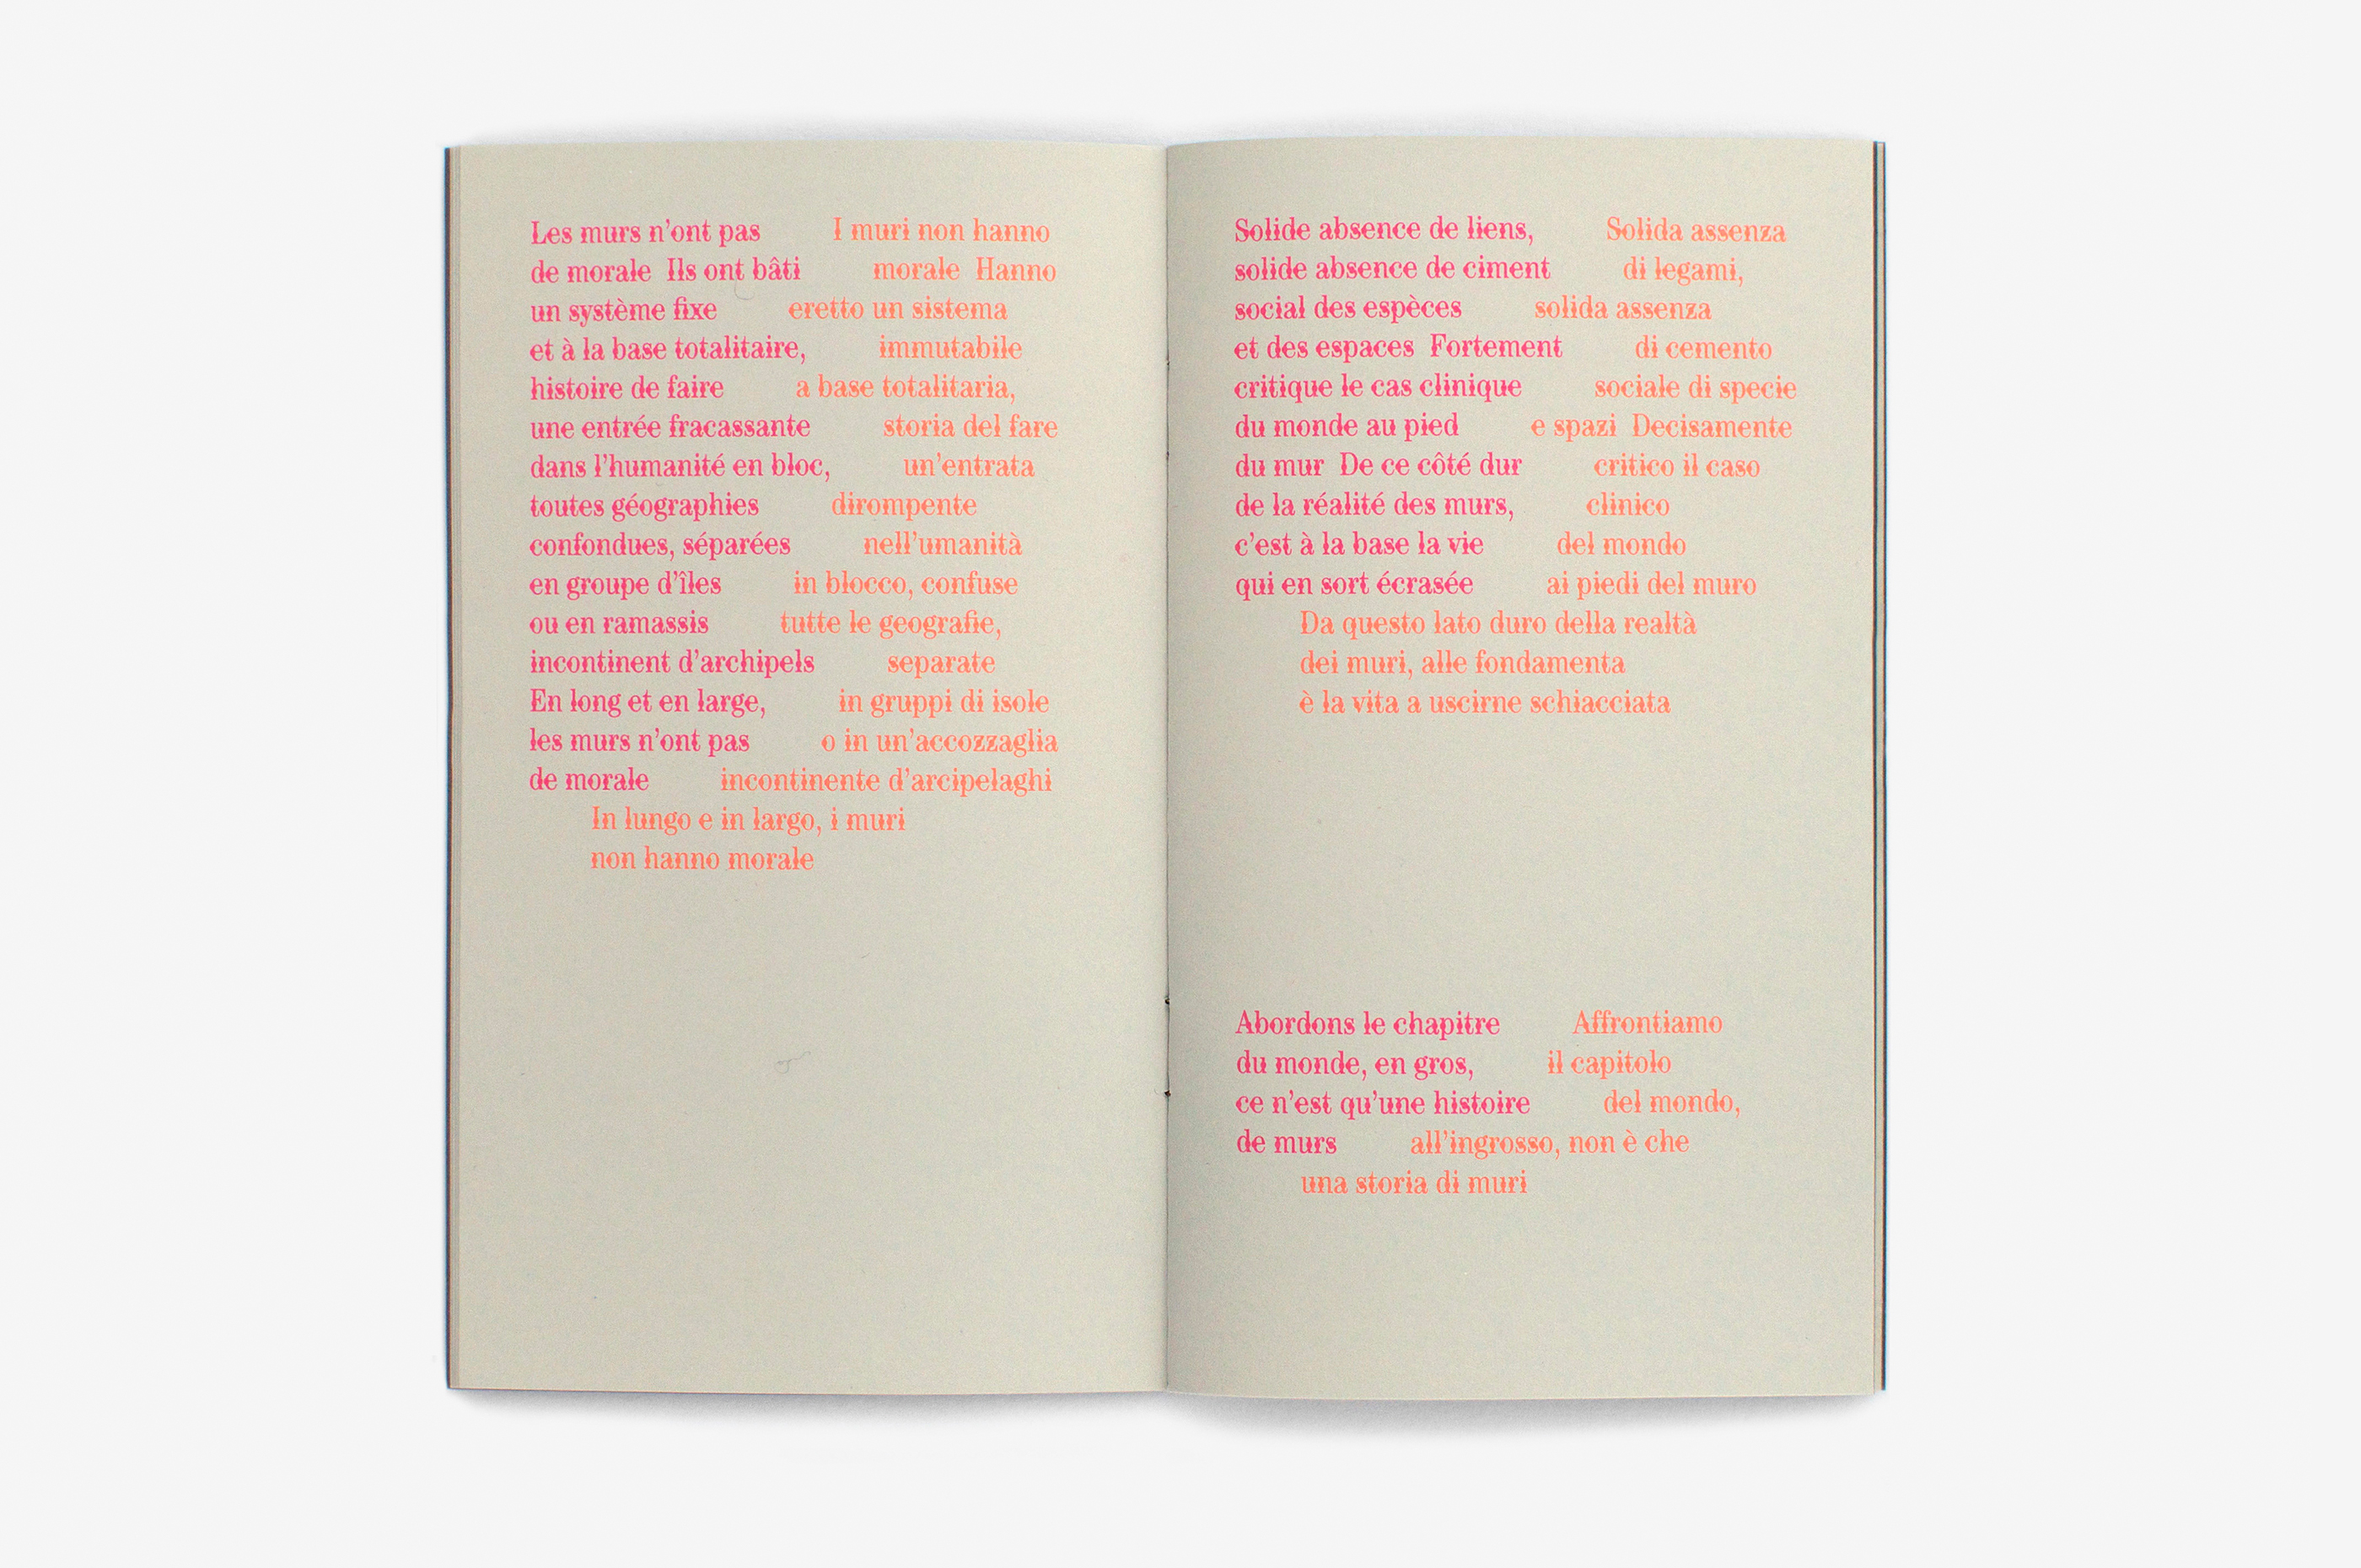 Les murs n’ont pas I muri non hanno
de morale Ils ont bâti morale Hanno
un système fixe eretto un sistema
et à la base totalitaire, immutabile
histoire de faire a base totalitaria,
une entrée fracassante storia del fare
dans l’humanité en bloc, un’entrata
toutes géographies dirompente
confondues, séparées nell’umanità
en groupe d’îles in blocco, confuse
ou en ramassis tutte le geografie,
incontinent d’archipels separate
En long et en large, in gruppi di isole
les murs n’ont pas o in un’accozzaglia
de morale incontinente d’arcipelaghi
In lungo e in largo, i muri
non hanno morale
Solide absence de liens, Solida assenza
solide absence de ciment di legami,
social des espèces solida assenza
et des espaces Fortement di cemento
critique le cas clinique sociale di specie
du monde au pied e spazi Decisamente
du mur De ce côté dur critico il caso
de la réalité des murs, clinico
c’est à la base la vie del mondo
qui en sort écrasée ai piedi del muro
Da questo lato duro della realtà
dei muri, alle fondamenta
è la vita a uscirne schiacciata
Abordons le chapitre Affrontiamo
du monde, en gros, il capitolo
ce n’est qu’une histoire del mondo,
de murs all’ingrosso, non è che
una storia di muri